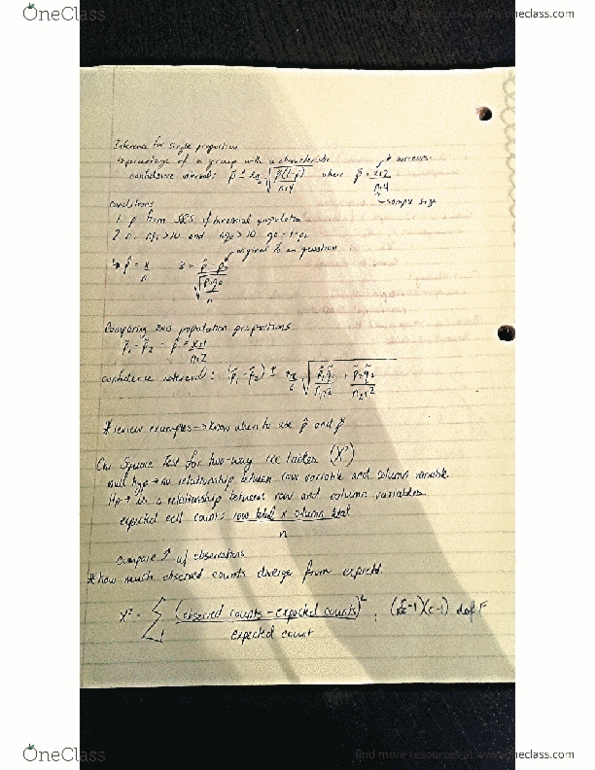 OneClass
find more resources at www.oneclass.com
Inference for single proportion
→ percentage of a group with a characteristic
# successes
confidence interval: p̃ ± zα/2 √(p̃(1-p̃)/n+4) where p̃ = x+2/n+4
→ sample size
conditions
1. p̂ from SRS of binomial population
2. n · np₀ > 10 and nq₀ > 10 q₀ = 1-p₀
original % in question
→ p̂ = x/n z = p̂ - p₀/√(p₀q₀/n)
Comparing two population proportions
p̃₁ - p̃₂ - p̃ = x+1/n+2
confidence interval: (p̃₁ - p̃₂) ± zα/2 √(p̃₁q̃₁/n₁+2 + p̃₂q̃₂/n₂+2)
* review examples → know when to use p̂ and p̃
Chi Square Test for two-way tables (X²)
null hyp → no relationship between row variable and column variable.
→ is a relationship between row and column variables
expected cell counts row total x column total
n
compare ↑ w/ observations
* how much observed counts diverge from expected.
X² = Σ (observed counts - expected counts)²/expected count , (r-1)(c-1) d of F
OneClass
find more resources at www.oneclass.com